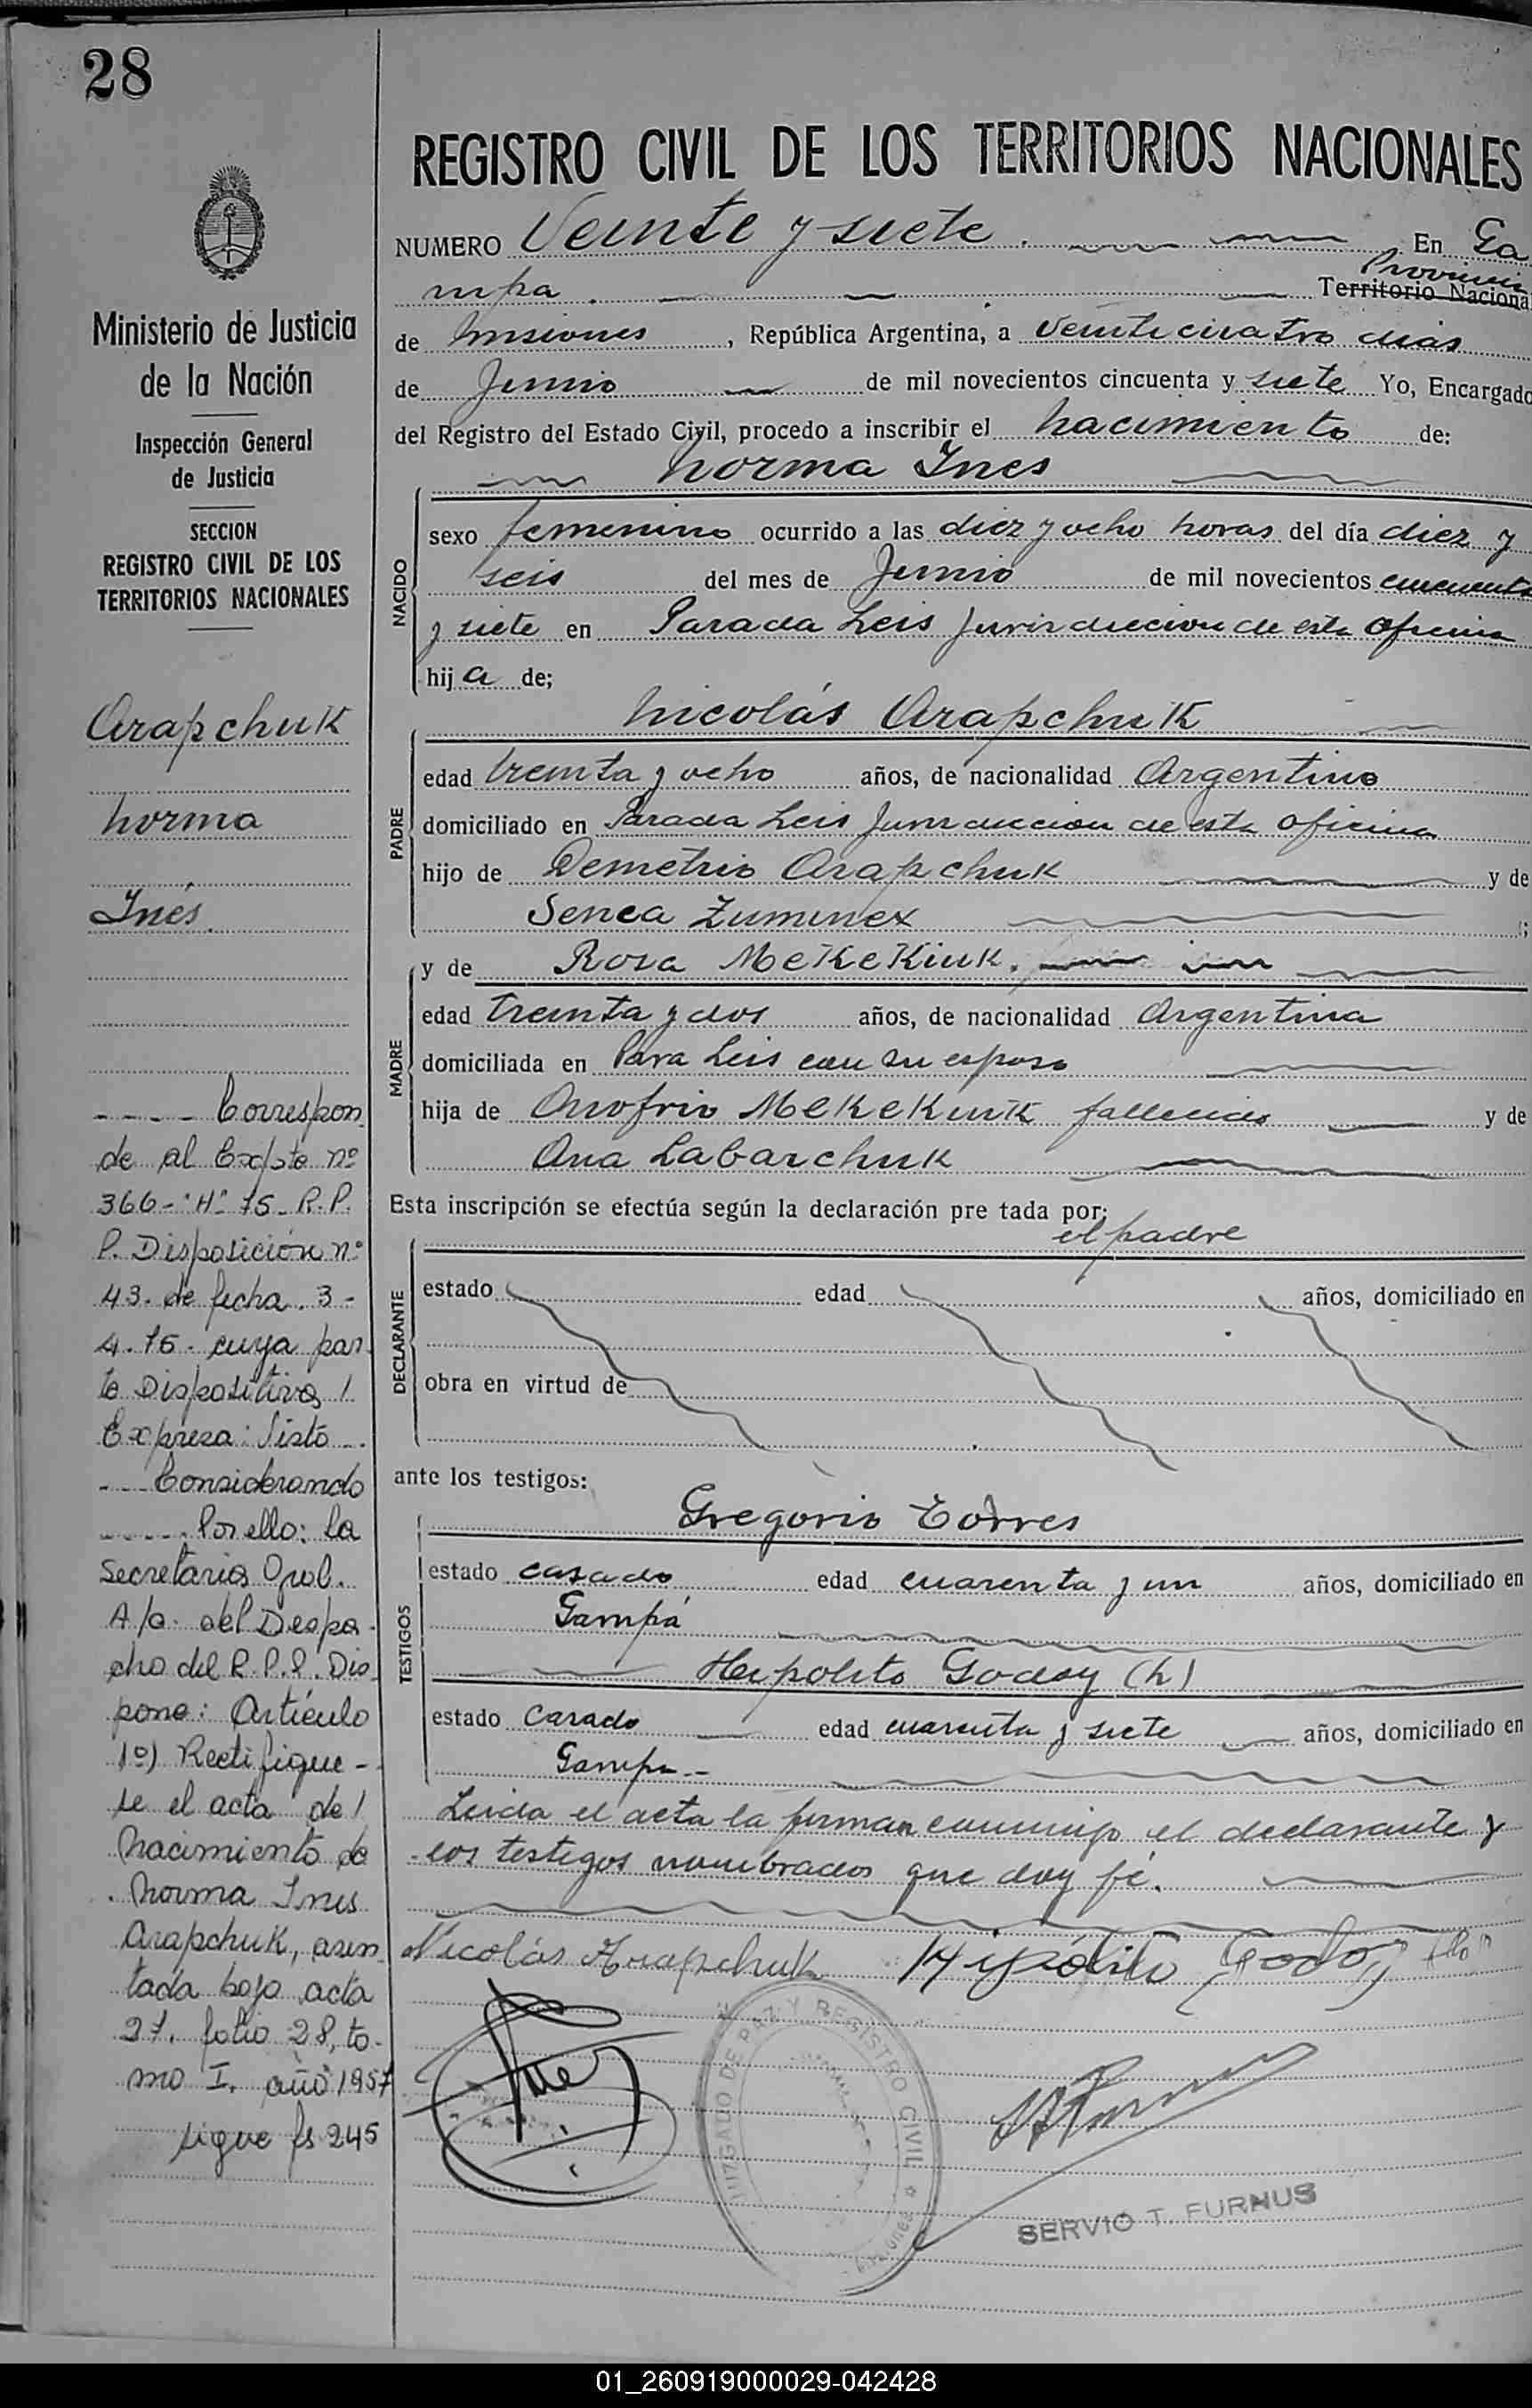 28
Ministerio de Justicia
de la Nación
Inspección General
de Justicia
SECCION
REGISTRO CIVIL DE LOS
TERRITORIOS NACIONALES
Arapchuk
Norma
Inés.
Correspon
de al Expte nº
366-"H"-75-R.P.
P. Disposición nº
43. de fecha. 3-
4.75. cuya par
te Dispositiva
Expresa: Visto
Considerando
Por ello: La
Secretaria Gral.
A/c. del Despa
cho del R.P.P. Dis
pone: Artículo
1º) Rectifique-
se el acta de
Nacimiento de
Norma Ines
Arapchuk, asen
tada bajo acta
27. folio 28, to-
mo I. año 1957
sigue fs 245
REGISTRO CIVIL DE LOS TERRITORIOS NACIONALES
NUMERO Veinte y siete. En Ga
Provincia
mpa. Territorio Naciona
de Misiones, República Argentina, a veinticuatro dias
de Junio de mil novecientos cincuenta y siete Yo, Encargado
del Registro del Estado Civil, procedo a inscribir el Nacimiento de:
Norma Ines
NACIDO
sexo femenino ocurrido a las diez y ocho horas del día diez y
seis del mes de Junio de mil novecientos cincuenta
y siete en Parada Leis Jurisdiccion de esta oficina
hija de;
Nicolás Arapchuk
PADRE
edad treinta y ocho años, de nacionalidad Argentino
domiciliado en Parada Leis Jurisdiccion de esta oficina
hijo de Demetrio Arapchuk y de
Senca Zuminex ;
y de Rosa Mekekiuk.
MADRE
edad treinta y dos años, de nacionalidad Argentina
domiciliada en Para Leis con su esposo
hija de Onofrio Mekekiuk fallecido y de
Ana Labarchuk
Esta inscripción se efectúa según la declaración pre tada por:
el padre
DECLARANTE
estado edad años, domiciliado en
obra en virtud de
ante los testigos:
Gregorio Torres
TESTIGOS
estado casado edad cuarenta y un años, domiciliado en
Gampá
Hipolito Godoy (h)
estado casado edad cuarenta y siete años, domiciliado en
Gampa.-
Leida el acta la firman conmigo el declarante y
los testigos nombrados que doy fé.
Nicolás Arapchuk Hipólito Godoy
JUZGADO DE PAZ Y REGISTRO CIVIL
SERVIO T. FURNUS
01_260919000029-042428